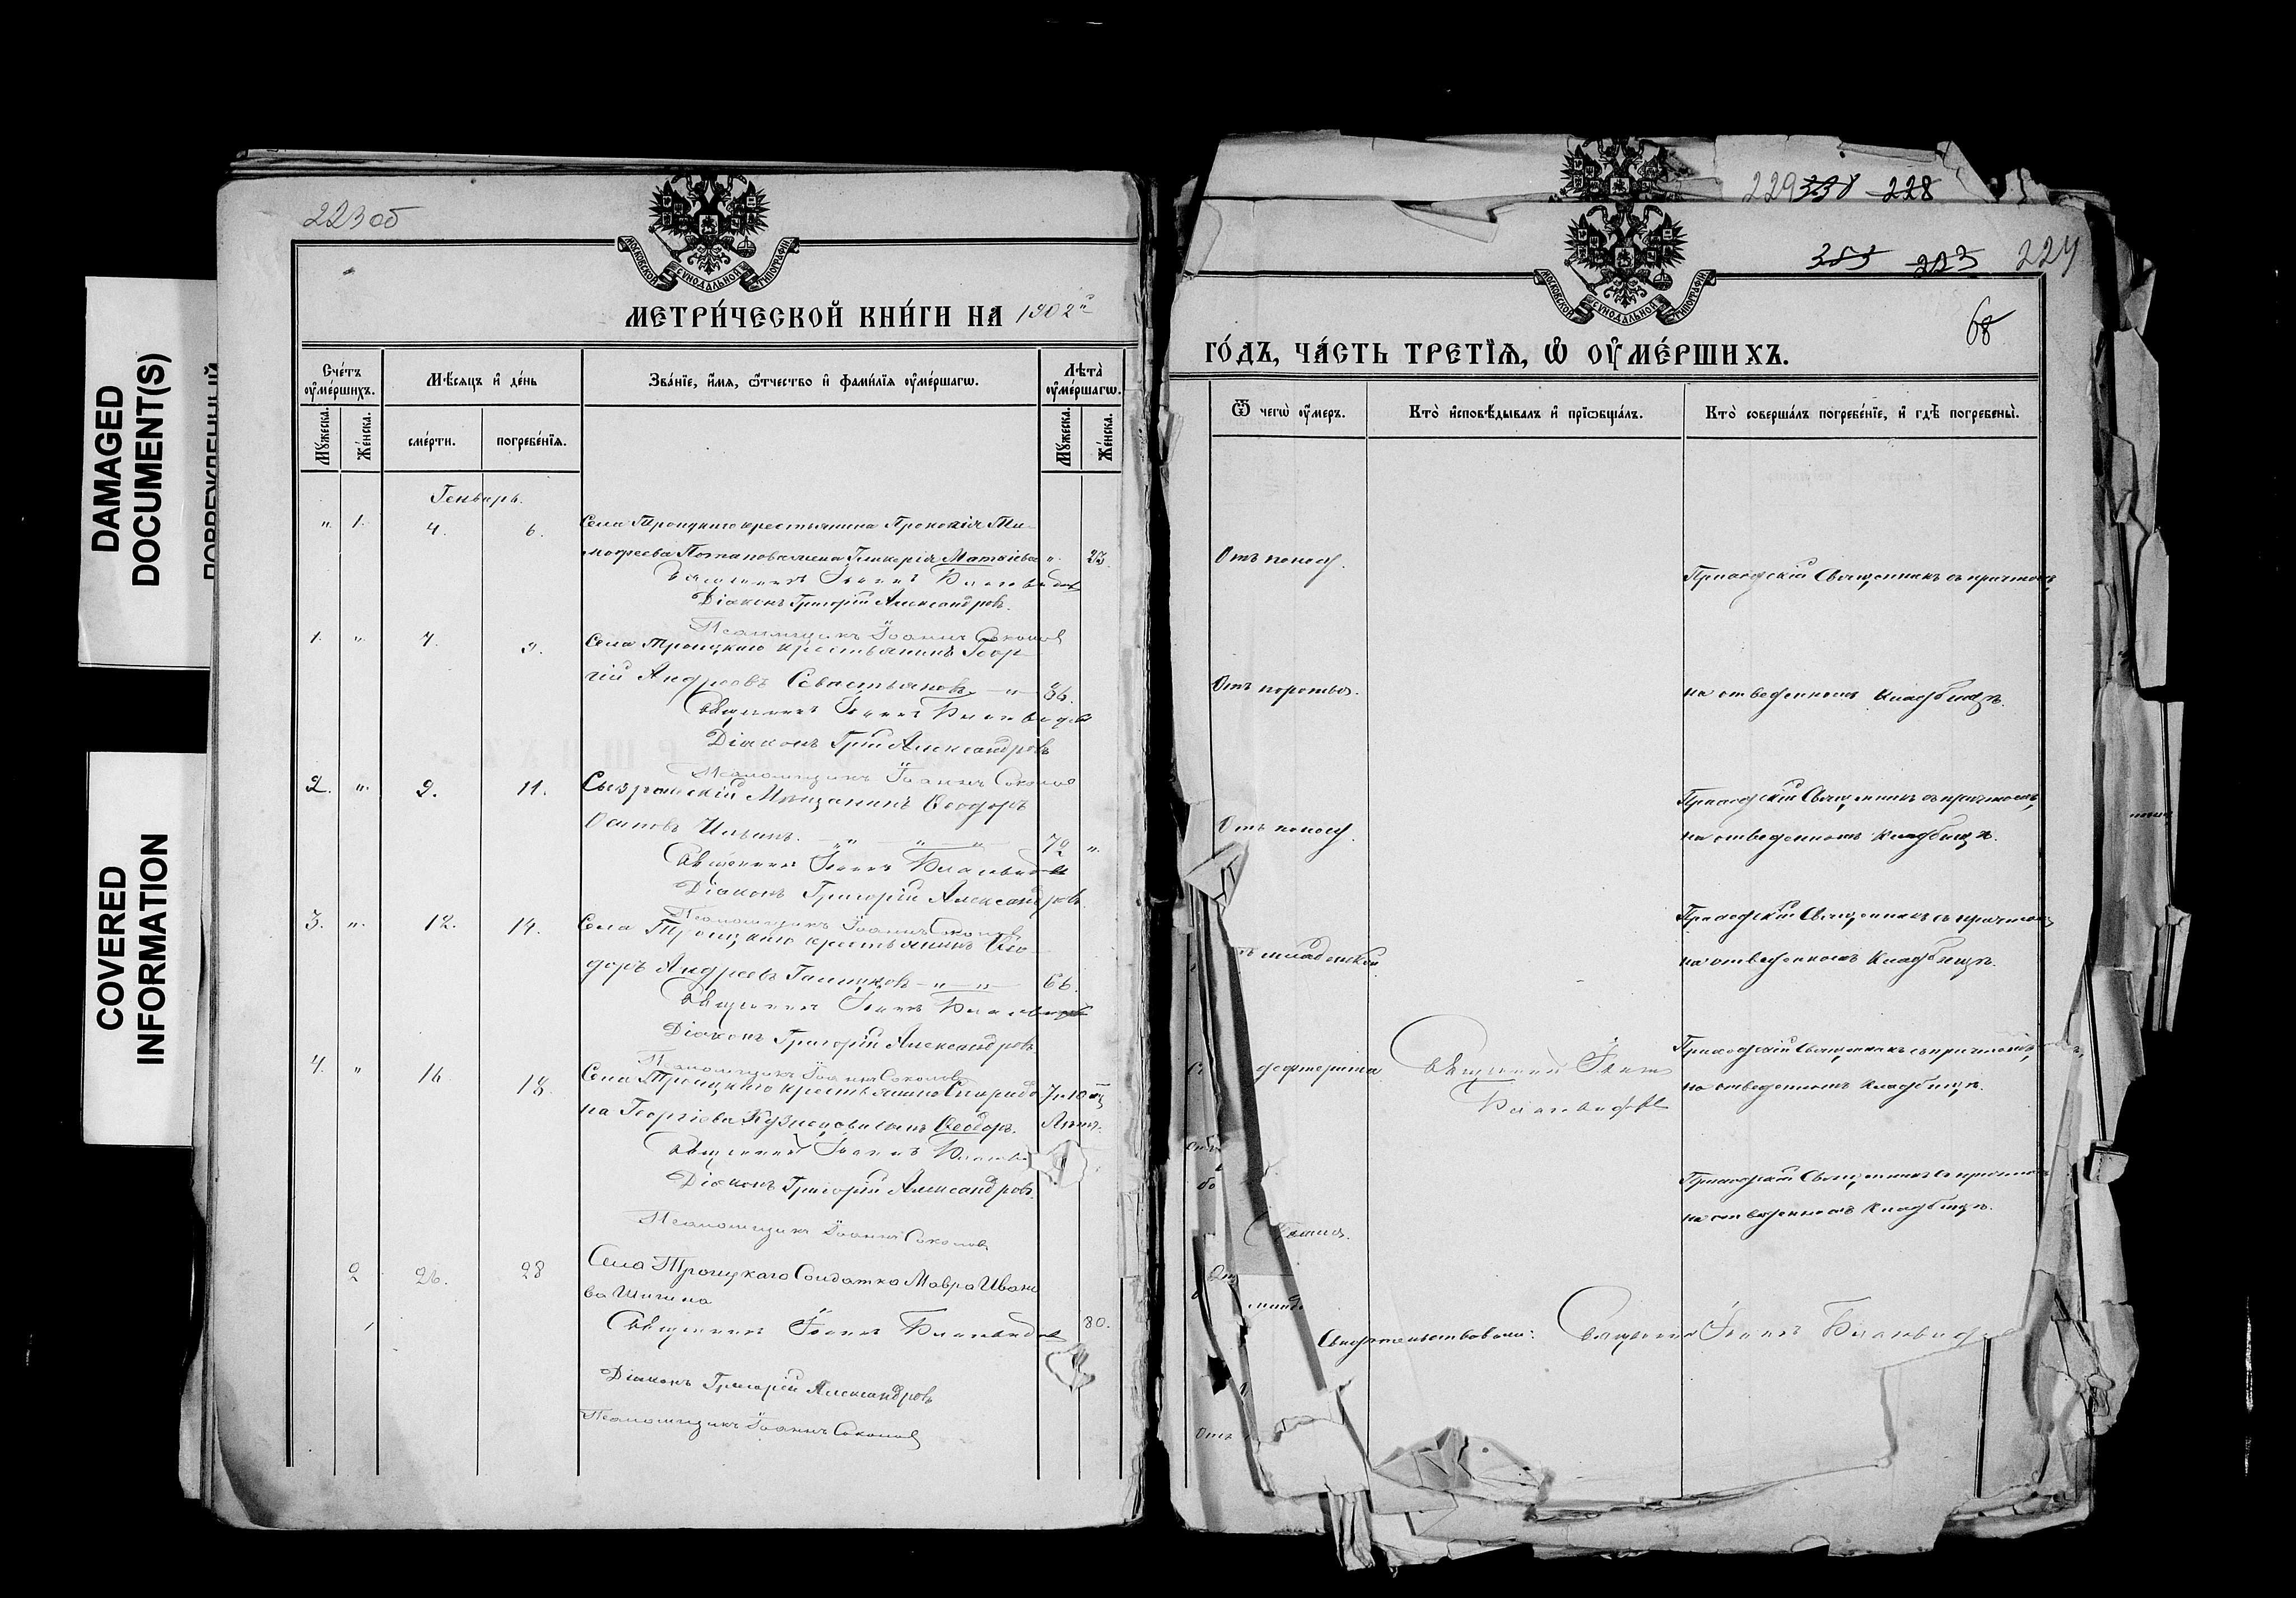 DAMAGED
DOCUMENT(S)
COVERED
INFORMATION
223 об
МОСКОВСКОЙ СѴНОДАЛЬНОЙ ТИПОГРАФІИ
МЕТРИ́ЧЕСКОЙ КНИ́ГИ НА 1902й
Сче́тъ ᲂу҆ме́ршихъ.
Мѣ́сяцъ и҆ де́нь
Зва́нїе, и҆́мѧ, ѻ҆́тчество и҆ фами́лїѧ ᲂу҆ме́ршагѡ.
Лѣ́та ᲂу҆ме́ршагѡ.
Мꙋ́жеска. Же́нска.
сме́рти. погребе́нїѧ.
Мꙋ́жеска. Же́нска.
Генварь.
" 1. 4. 6. Села Троицкаго крестьянина Прокопія Ти-
мофеева Потапова жена Гликерія Матѳіева " 23.
Священникъ Іоаннъ
Діаконъ Григорій Александровъ.
Псаломщикъ Іоаннъ Соколов
1. " 7. 9. Села Троицкаго крестьянинъ Геор-
гій Андреевъ Севастьяновъ 86.
Священникъ Іоаннъ
Діаконъ Григ Александровъ
Псаломщикъ Іоаннъ Соколов
2. " 9. 11. Сызранскій Мѣщанинъ Ѳеодоръ
Осиповъ Ильинъ. 72 "
Священникъ Іоаннъ
Діаконъ Григорій Александровъ
Псаломщикъ Іоаннъ Соколов
3. " 12. 14. Села Троицкаго крестьянинъ Ѳео-
доръ Андреевъ 66.
Священникъ Іоаннъ
Діаконъ Григорій Александровъ
Псаломщикъ Іоаннъ Соколовъ
4. " 16. 18. Села Троицкаго крестьянина Спиридо
на Георгіева Кузнецова сынъ Ѳеодоръ.
Священникъ Іоаннъ
Діаконъ Григорій Александровъ.
Псаломщикъ Іоаннъ Соколовъ
2 26. 28 Села Троицкаго Солдатка Мавра Ивано
ва Шигина
80.
Священникъ Іоаннъ
Діаконъ Григорій Александровъ
Псаломщикъ Іоаннъ Соколов
229 228
МОСКОВСКОЙ СѴНОДАЛЬНОЙ ТИПОГРАФІИ
223 224
68
ГО́ДЪ, ЧА́СТЬ ТРЕТЇѦ, Ѡ҆ ОУ҆МЕ́РШИХЪ.
Ѿ чегѡ̀ ᲂу҆́меръ.
Кто̀ и҆сповѣ́дывалъ и҆ прїѡбща́лъ.
Кто̀ соверша́лъ погребе́нїе, и҆ гдѣ̀ погребены̀.
Отъ поносу.
Приходскій Священникъ съ причтомъ,
на отведенномъ кладбищѣ.
Отъ поносу.
Приходскій Священникъ съ причтомъ,
на отведенномъ кладбищѣ.
Приходскій Священникъ съ причтомъ
на отведенномъ кладбищѣ.
дифтерита
Священникъ Іоаннъ
Приходскій Священникъ съ причтомъ,
на отведенномъ кладбищѣ.
Приходскій Священникъ съ причтомъ
на отведенномъ кладбищѣ.
Свидѣтельствовали: Священникъ Іоаннъ